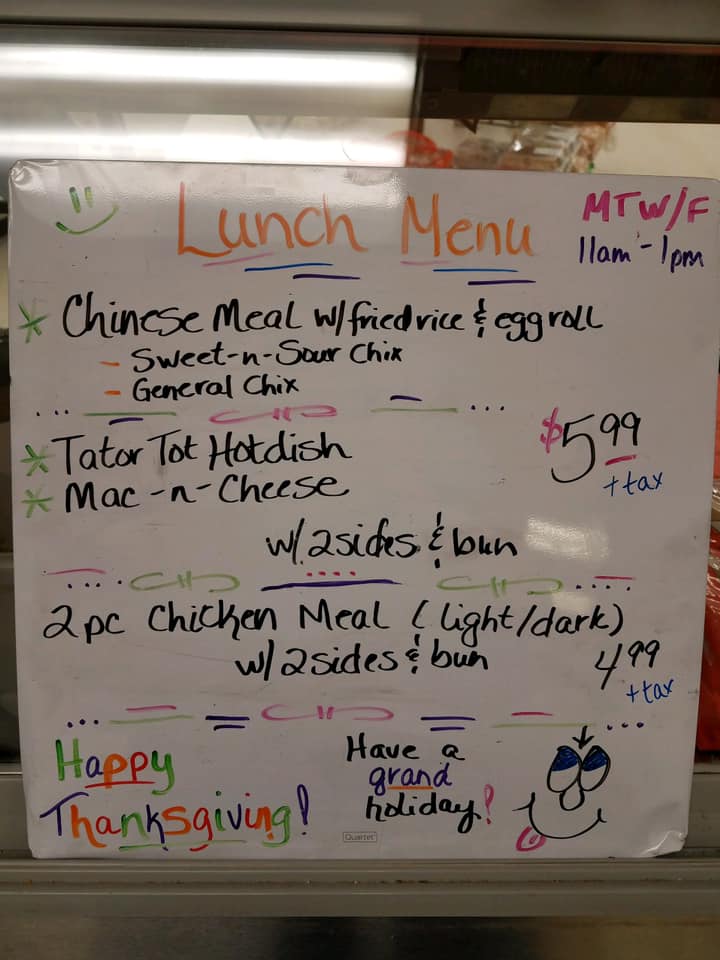 Lunch Menu
MTW/F
11am - 1pm
* Chinese Meal w/fried rice & egg roll
- Sweet-n-Sour Chix
- General Chix
* Tator Tot Hotdish
* Mac-n-Cheese
$5.99
+ tax
w/ 2 sides & bun
2 pc Chicken Meal (light/dark)
w/ 2 sides & bun
4.99
+ tax
Happy
Thanksgiving!
Have a
grand
holiday!
Quartet